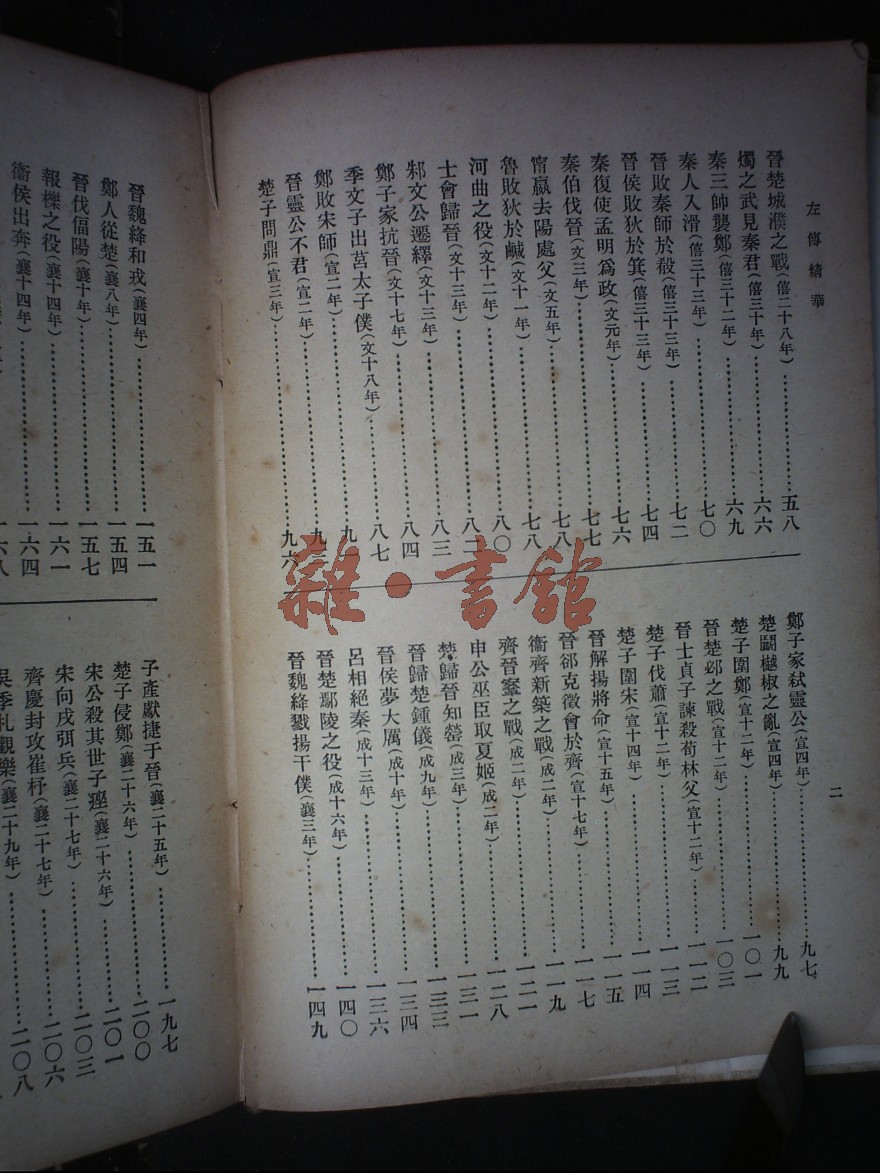 左傳精華
晉楚城濮之戰(僖二十八年)……五八
燭之武見秦君(僖三十年)……六六
秦三帥襲鄭(僖三十二年)……六九
秦人入滑(僖三十三年)……七〇
晉敗秦師於殽(僖三十三年)……七二
晉侯敗狄於箕(僖三十三年)……七四
秦復使孟明爲政(文元年)……七六
秦伯伐晉……七七
甯嬴去陽處父(文五年)……七八
魯敗狄於鹹(文十一年)……八〇
河曲之役(文十二年)……八二
士會歸晉(文十三年)……八三
邾文公遷繹(文十三年)……八四
鄭子家抗晉(文十七年)……八七
季文子出莒太子僕(文十八年)
鄭敗宋師(宣二年)
晉靈公不君(宣二年)
楚子問鼎(宣三年)……九六
二
鄭子家弒靈公(宣四年)……九七
楚鬭樾椒之亂(宣四年)……九九
楚子圍鄭(宣十二年)……一〇一
晉楚邲之戰(宣十二年)……一〇三
晉士貞子諫殺荀林父(宣十二年)……一一二
楚子伐蕭(宣十二年)……一一三
楚子圍宋(宣十四年)……一一四
晉解揚將命(宣十五年)……一一五
晉郤克徵會於齊(宣十七年)……一一七
衞齊新築之戰(成二年)……一一九
齊晉鞌之戰(成二年)……一二一
申公巫臣取夏姬(成二年)……一二八
楚歸晉知罃(成三年)……一三一
晉歸楚鍾儀(成九年)……一三三
晉侯夢大厲(成十年)……一三四
呂相絕秦(成十三年)……一三六
晉楚鄢陵之役(成十六年)……一四〇
晉魏絳戮揚干僕(襄三年)……一四九
晉魏絳和戎(襄四年)……一五一
鄭人從楚(襄八年)……一五四
晉伐偪陽(襄十年)……一五七
報櫟之役(襄十四年)……一六一
衞侯出奔(襄十四年)……一六四
一六八
子產獻捷于晉(襄二十五年)……一九七
楚子侵鄭(襄二十六年)……二〇〇
宋公殺其世子痤(襄二十六年)……二〇一
宋向戌弭兵(襄二十七年)……二〇三
齊慶封攻崔杼(襄二十七年)……二〇六
吳季札觀樂(襄二十九年)……二〇八
雜·書館